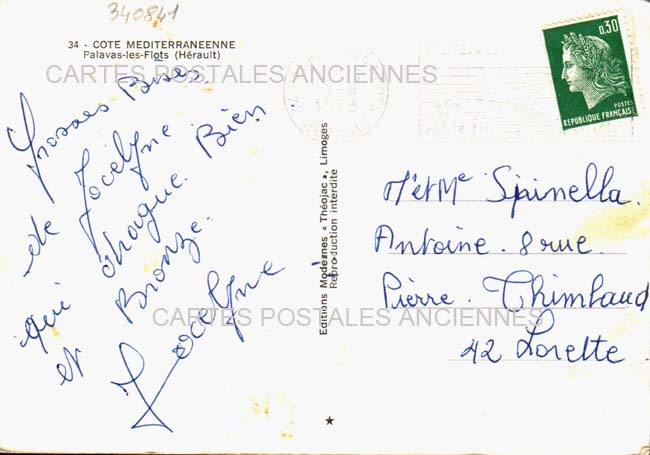 340841
34 - COTE MEDITERRANEENNE
Palavas-les-Flots (Hérault)
CARTES POSTALES ANCIENNES
Grosses Bises
de Jocelyne
qui Bien
et Bronze.
Jocelyne
Editions Modernes « Théojac », Limoges
Reproduction interdite
0,30
POSTES
REPUBLIQUE FRANÇAISE
1973
M et Me Spinella.
Antoine. 8 rue.
Pierre. Thimbaud
42 Lorette.
CARTES POSTALES ANCIENNES